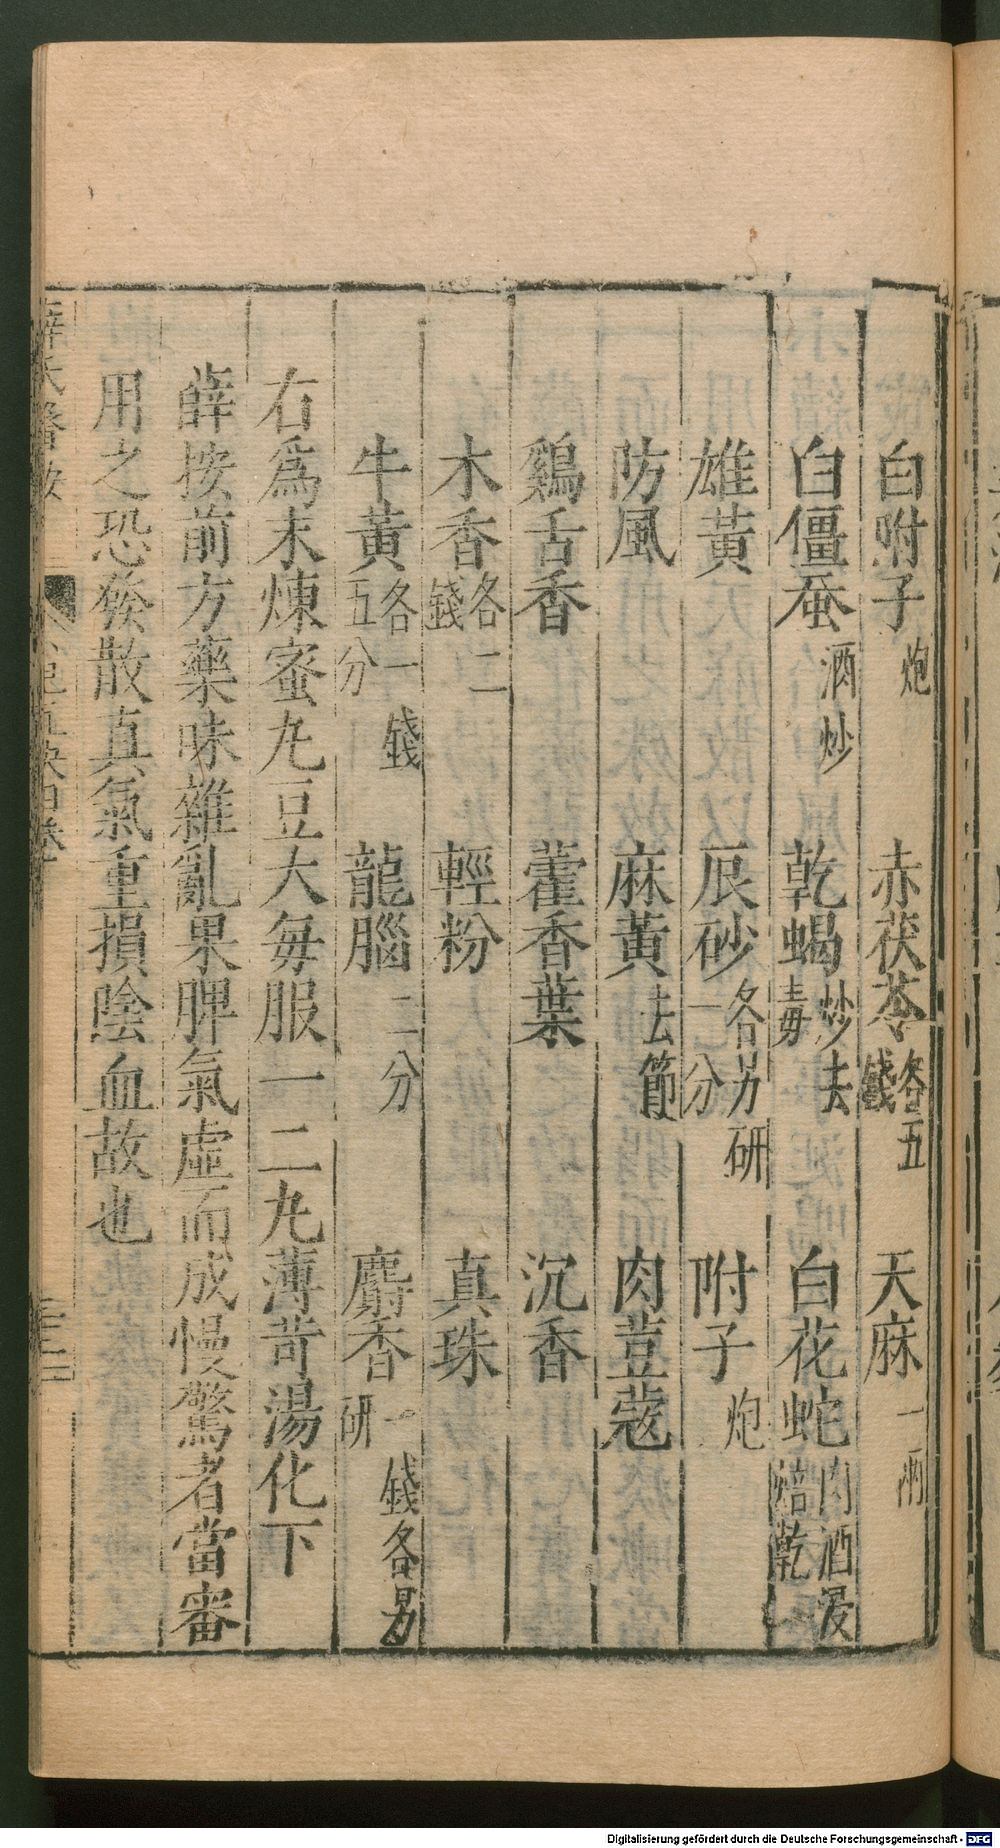 白附子炮　赤茯苓各五錢　天麻一兩
白僵蚕酒炒　乾蝎炒去毒　白花蛇肉酒浸焙乾
雄黃　辰砂各另研一分　附子炮
防風　麻黃去節　肉荳蔻
鷄舌香　藿香葉　沉香
木香各二錢　輕粉　真珠
牛黃各一錢五分　龍腦二分　麝香一錢各另研
右爲末煉蜜丸豆大毎服一二丸薄苛湯化下
薛按前方藥味雜亂果脾氣虛而成慢驚者當審
用之恐發散真氣重損陰血故也
薛氏醫按
Digitalisierung gefördert durch die Deutsche Forschungsgemeinschaft - DFG